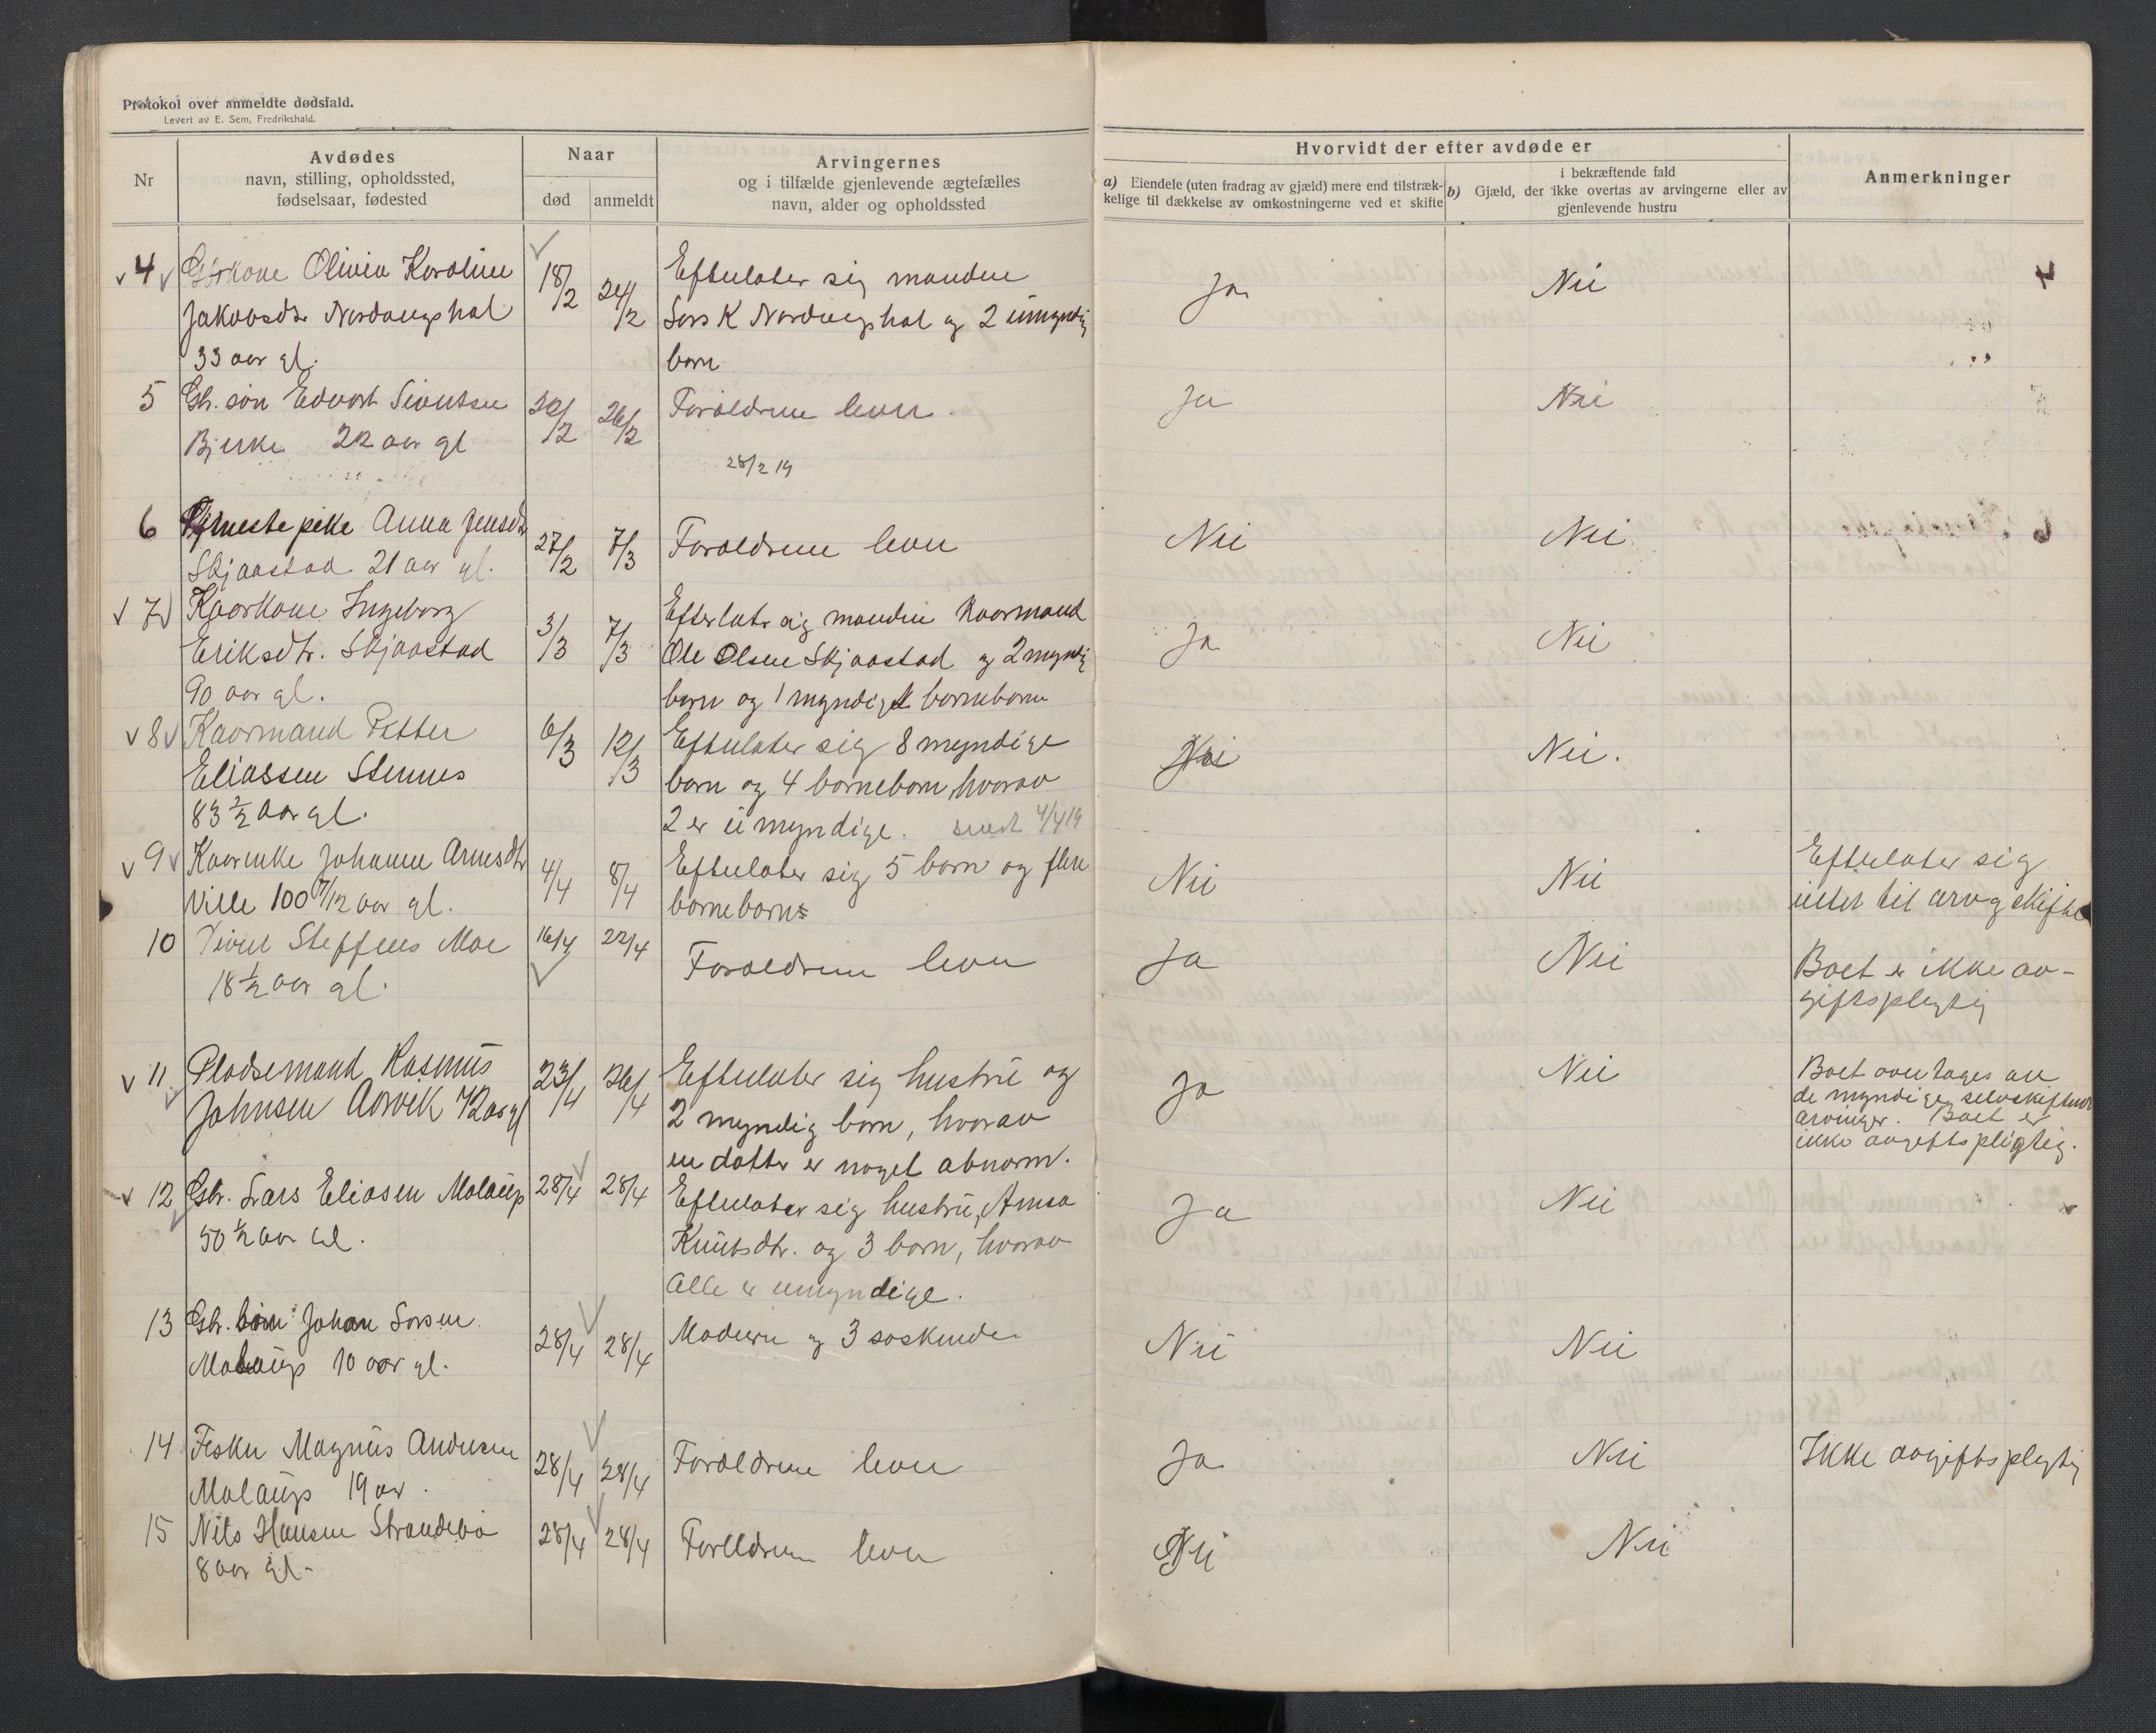 Protokol over anmeldte dødsfald.
Levert av E. Sem, Fredrikshald.
Nr
Avdødes
navn, stilling, opholdssted,
fødselsaar, fødested
Naar
død anmeldt
Arvingernes
og i tilfælde gjenlevende ægtefælles
navn, alder og opholdssted
Hvorvidt der efter avdøde er
a) Eiendele (uten fradrag av gjæld) mere end tilstræk-
kelige til dækkelse av omkostningerne ved et skifte
i bekræftende fald
b) Gjæld, der ikke overtas av arvingerne eller av
gjenlevende hustru
Anmerkninger
4 Gbrkone Olivia Karoline 18/2 24/2 Efterlater sig manden Ja Nei
Jakobsdtr Lars K og 2 umyndig
33 aar gl. born
5 Gbr. søn Edvart Sivertsen 20/2 26/2 Foroldrene lever. Ja Nei
Bjerke 22 aar gl
28/2 19
6 Tjeneste pike Anna Jensdtr 27/2 7/3 Foroldrene lever Nei Nei
Skjaastad 21 aar gl.
7 Kaarkone Ingeborg 3/3 7/3 Efterlater sig manden Kaarmand Ja Nei
Eriksdtr. Skjaastad Ole Olsen Skjaastad og 2 myndig
90 aar gl. born og 1 myndigt borneborn
8 Kaarmand Petter 6/3 12/3 Efterlater sig 8 myndige Nei.
Eliassen Stennes born og 4 borneborn, hvorav
83 1/2 aar gl. 2 er umyndige. sendt 4/4 19
9 Kaarenke Johanne Arnesdtr 4/4 8/4 Efterlater sig 5 born og flere Nei Nei Efterlater sig
Ville 100 7/12 aar gl. borneborn intet til arv og skifte
10 Steffens Moe 16/4 22/4 Foroldrene lever Ja Nei Boet er ikke av-
18 1/2 aar gl. giftspligtig
11 Pladsemand Rasmus 23/4 26/4 Efterlater sig hustru og Ja Nei Boet overtages av
Johnsen Aarvik 72 aar gl 2 myndig born, hvorav de myndige selvskiftende
en datter er noget abnorm. arvinger. Boet er
ikke avgiftspligtig.
12 Gbr. Lars Eliasen Molaup 28/4 28/4 Efterlater sig hustru, Anna Ja Nei
50 1/2 aar gl. Knutsdtr. og 3 born, hvorav
alle er umyndige.
13 Gbr. søn Johan Larsen 28/4 28/4 Moderen og 3 søskende Nei Nei
Molaup 10 aar gl.
14 Fisker Magnus Andersen 28/4 28/4 Foroldrene lever Ja Nei Ikke avgiftspligtig
Molaup 19 aar.
15 Nils Hansen 28/4 28/4 Forelldrene lever Nei Nei
8 aar gl.